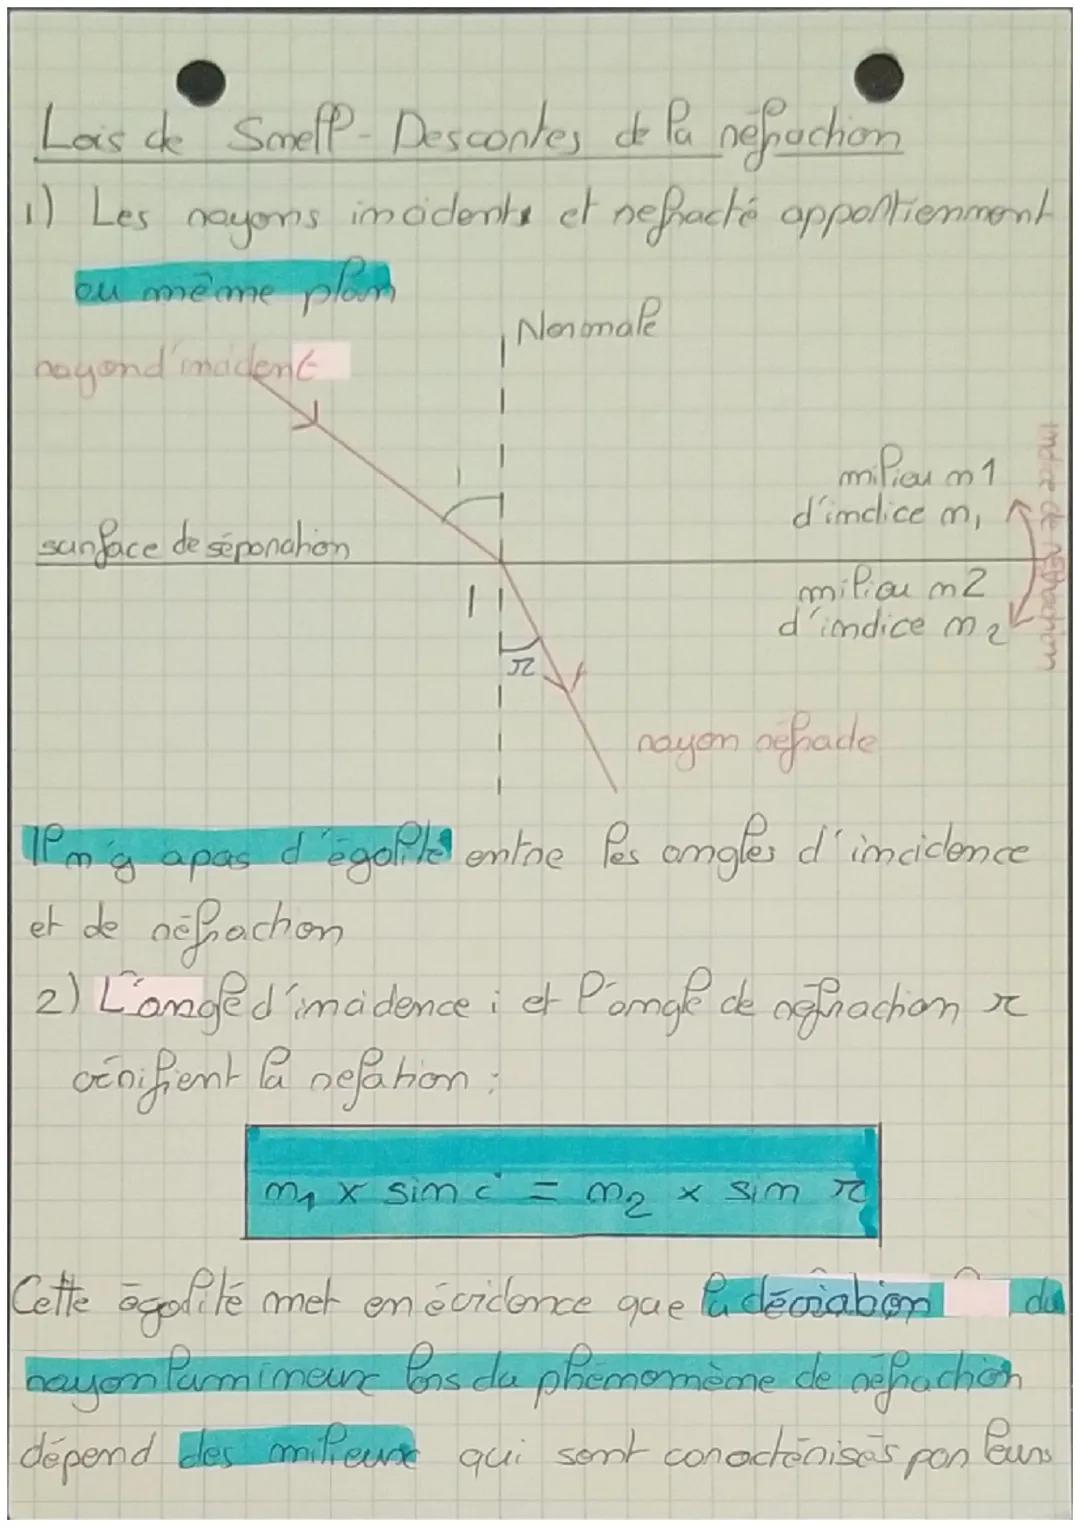 Lois de Snell-Descartes de la réfraction
1) Les rayons incidents et refracté appartiennent
au même plan
Normale
rayond'incident
i
milieu n1
d'indice n₁
surface de séparation
indice de réfraction
milieu n2
d'indice n₂
I
r
rayon réfracté
Il n'y a pas d'égalité entre les angles d'incidence
et de réfraction
2) L'angle d'incidence i et l'angle de réfraction r
vérifient la relation :
n₁ x sin i = n₂ x sin r
Cette égalité met en évidence que la déviation du
rayon lumineux lors du phénomène de réfraction
dépend des milieux qui sont caractérisés par leurs